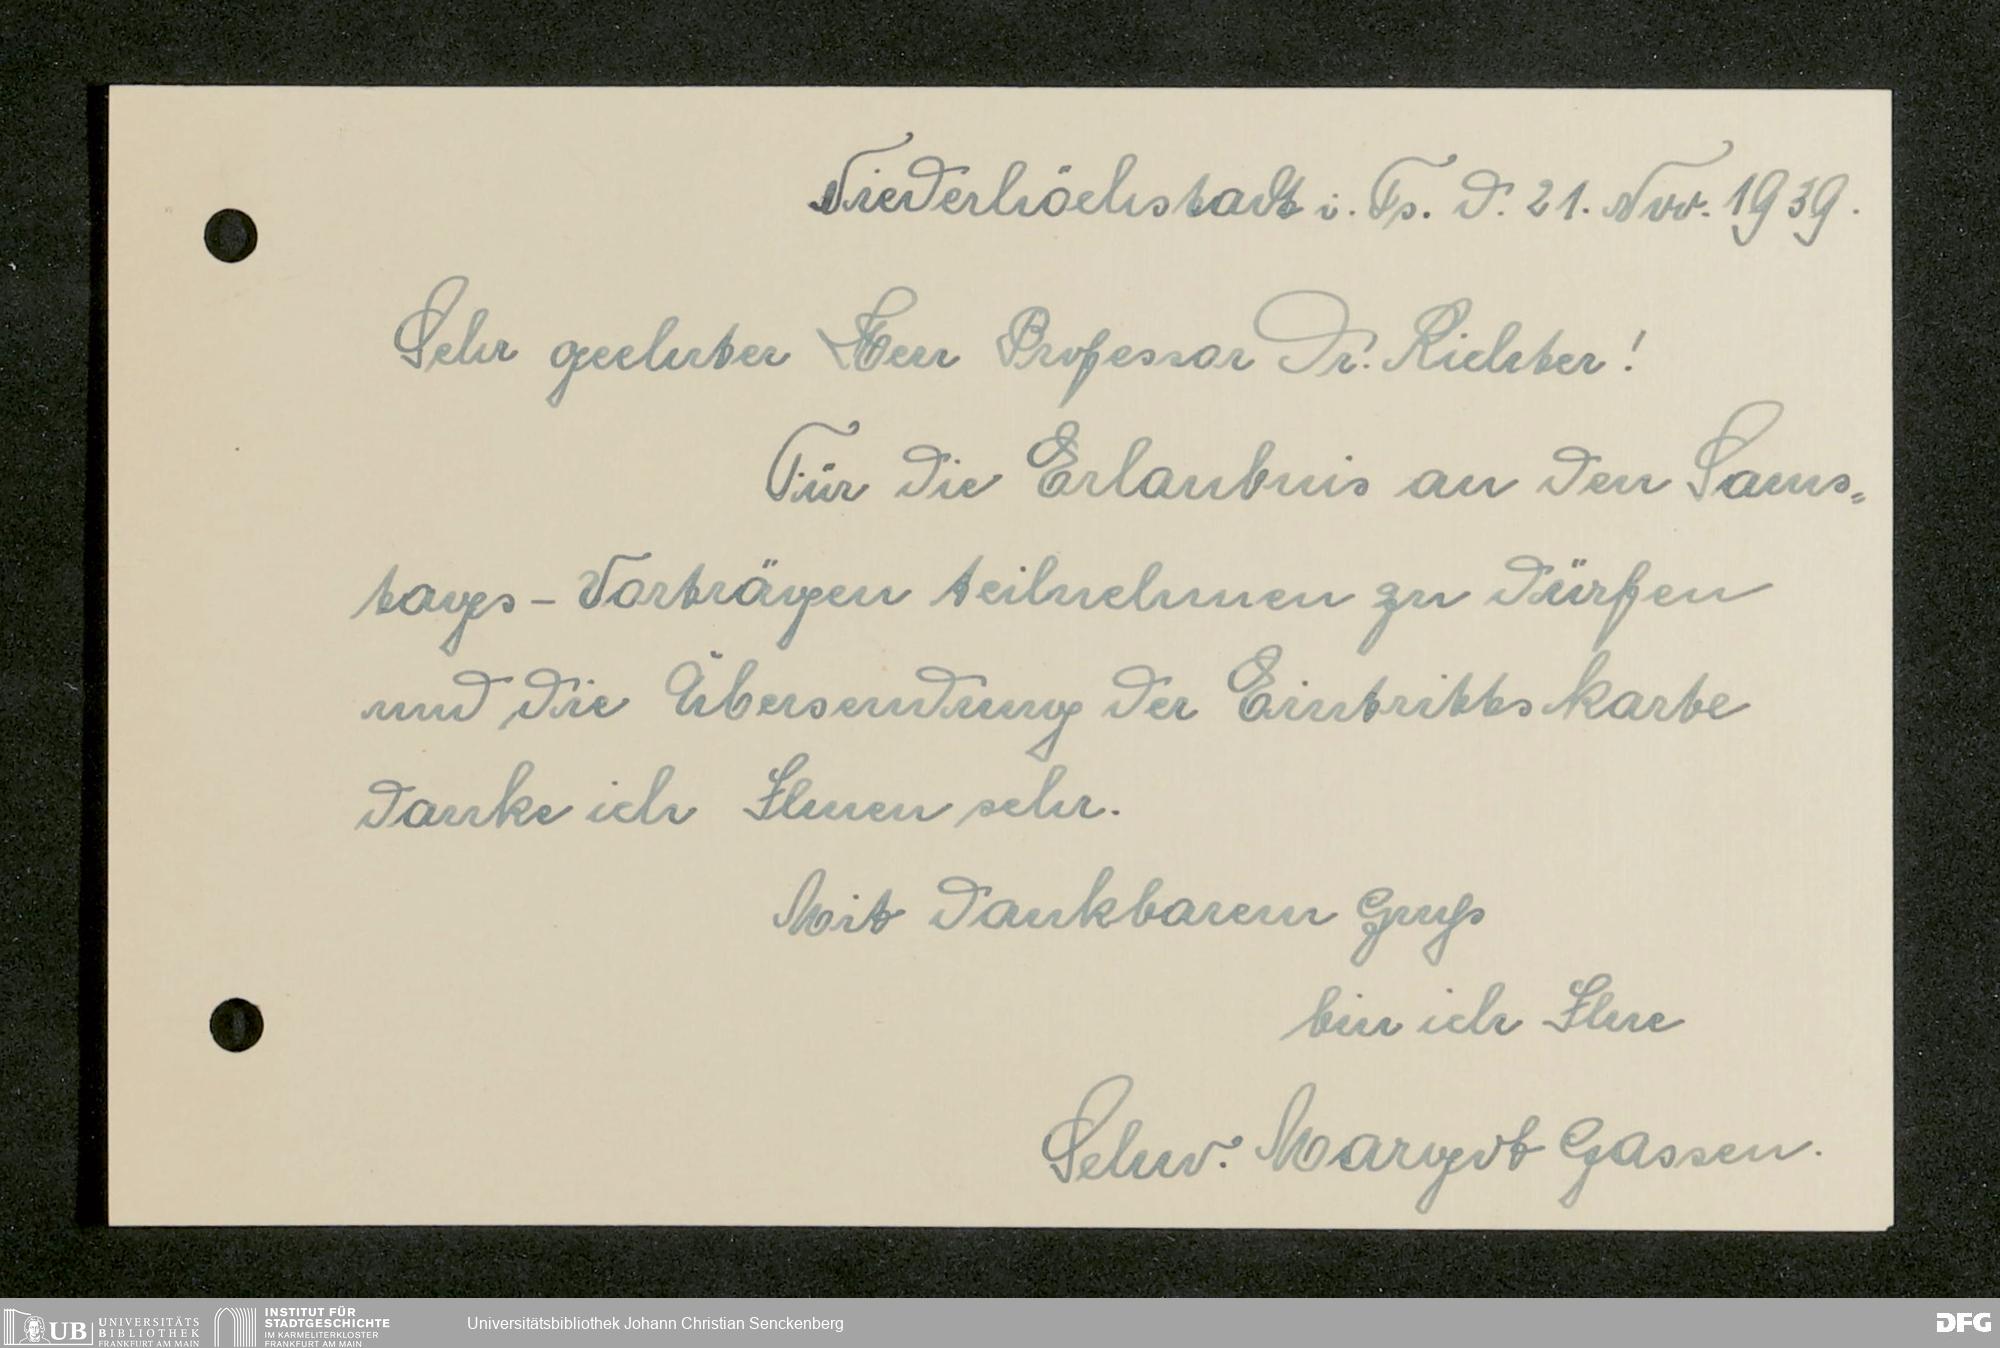 Niederhöchstadt i. Ts. d. 21. Nov. 1939.
Sehr geehrter Herr Professor Dr. Richter!
Für die Erlaubnis an den Sams-
tags-Vorträgen teilnehmen zu dürfen
und die Übersendung der Eintrittskarte
danke ich Ihnen sehr.
Mit dankbarem Gruß
bin ich Ihre
Schw. Margot Gassen.
UB UNIVERSITÄTS
BIBLIOTHEK
FRANKFURT AM MAIN
INSTITUT FÜR
STADTGESCHICHTE
IM KARMELITERKLOSTER
FRANKFURT AM MAIN
Universitätsbibliothek Johann Christian Senckenberg
DFG